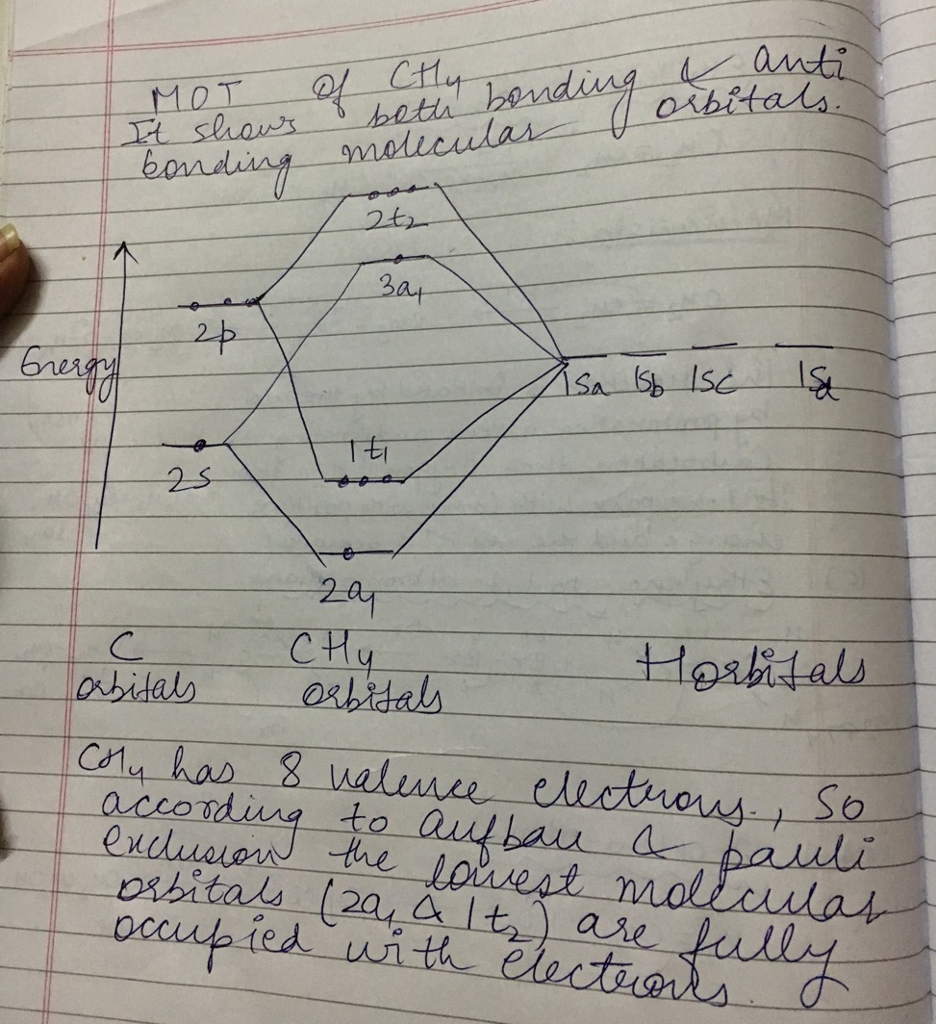 MOT of CH4
It shows both bonding & anti
bonding molecular orbitals.
2t2
3a1
2p
Energy
1Sa 1Sb 1Sc 1Sd
1t1
2s
2a1
C CH4 H orbitals
orbitals orbitals
CH4 has 8 valence electrons., So
according to aufbau & pauli
exclusion the lowest molecular
orbitals (2a1 & 1t2) are fully
occupied with electrons.